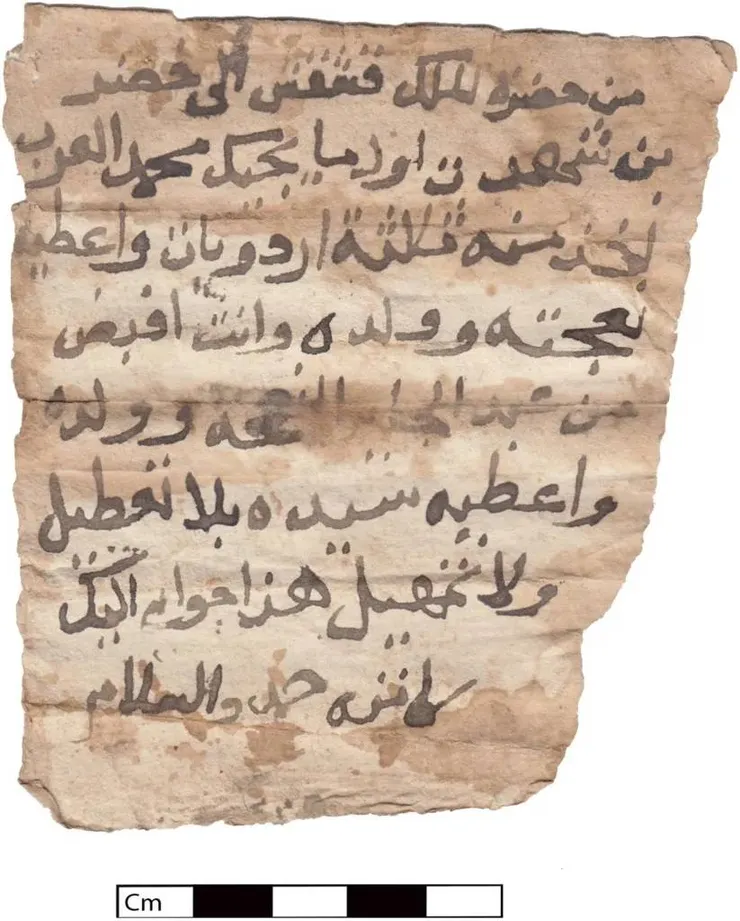 من حضرة الملك قشقش الى خضر
بن شهدت اول ما يجيك محمد العرب
لخذ منه ثلثة اردويات واعطيه
نعجته وولده وانت اقبض
من عبد الجابر النعجه وولده
واعطيه سيده بلا تعطيل
ولا تمهيل هذا جوابي اليك
لا تنزه حد والسلام
Cm